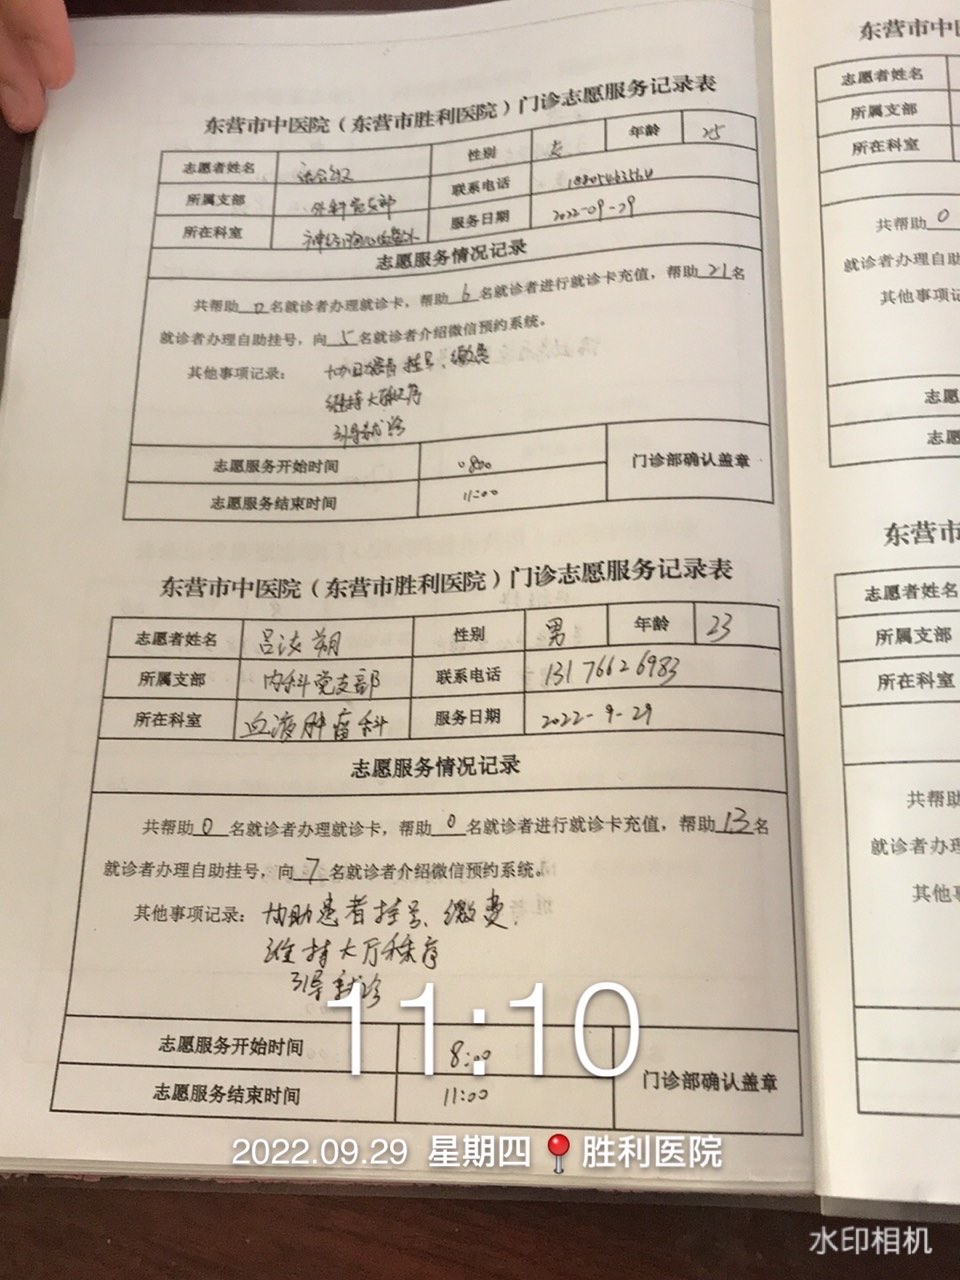 东营市中医院（东营市胜利医院）门诊志愿服务记录表
志愿者姓名 性别 女 年龄 25
所属支部 外科党支部 联系电话
所在科室 服务日期 2022-09-29
志愿服务情况记录
共帮助 0 名就诊者办理就诊卡，帮助 6 名就诊者进行就诊卡充值，帮助 21 名
就诊者办理自助挂号，向 5 名就诊者介绍微信预约系统。
其他事项记录： 协助患者挂号、缴费
维持大厅秩序
引导就诊
志愿服务开始时间 0800 门诊部确认盖章
志愿服务结束时间 11:00
东营市中医院（东营市胜利医院）门诊志愿服务记录表
志愿者姓名 性别 男 年龄 23
所属支部 内科党支部 联系电话 13176626983
所在科室 血液肿瘤科 服务日期 2022-9-29
志愿服务情况记录
共帮助 0 名就诊者办理就诊卡，帮助 0 名就诊者进行就诊卡充值，帮助 13 名
就诊者办理自助挂号，向 7 名就诊者介绍微信预约系统。
其他事项记录： 协助患者挂号、缴费.
维持大厅秩序
引导就诊
志愿服务开始时间 8:00 门诊部确认盖章
志愿服务结束时间 11:00
东营市中
志愿者姓名
所属支部
所在科室
共帮助 0
就诊者办理自助
其他事项记
志愿
志愿
东营市
志愿者姓名
所属支部
所在科室
共帮助
就诊者办理
其他事
11:10
2022.09.29 星期四 胜利医院
水印相机